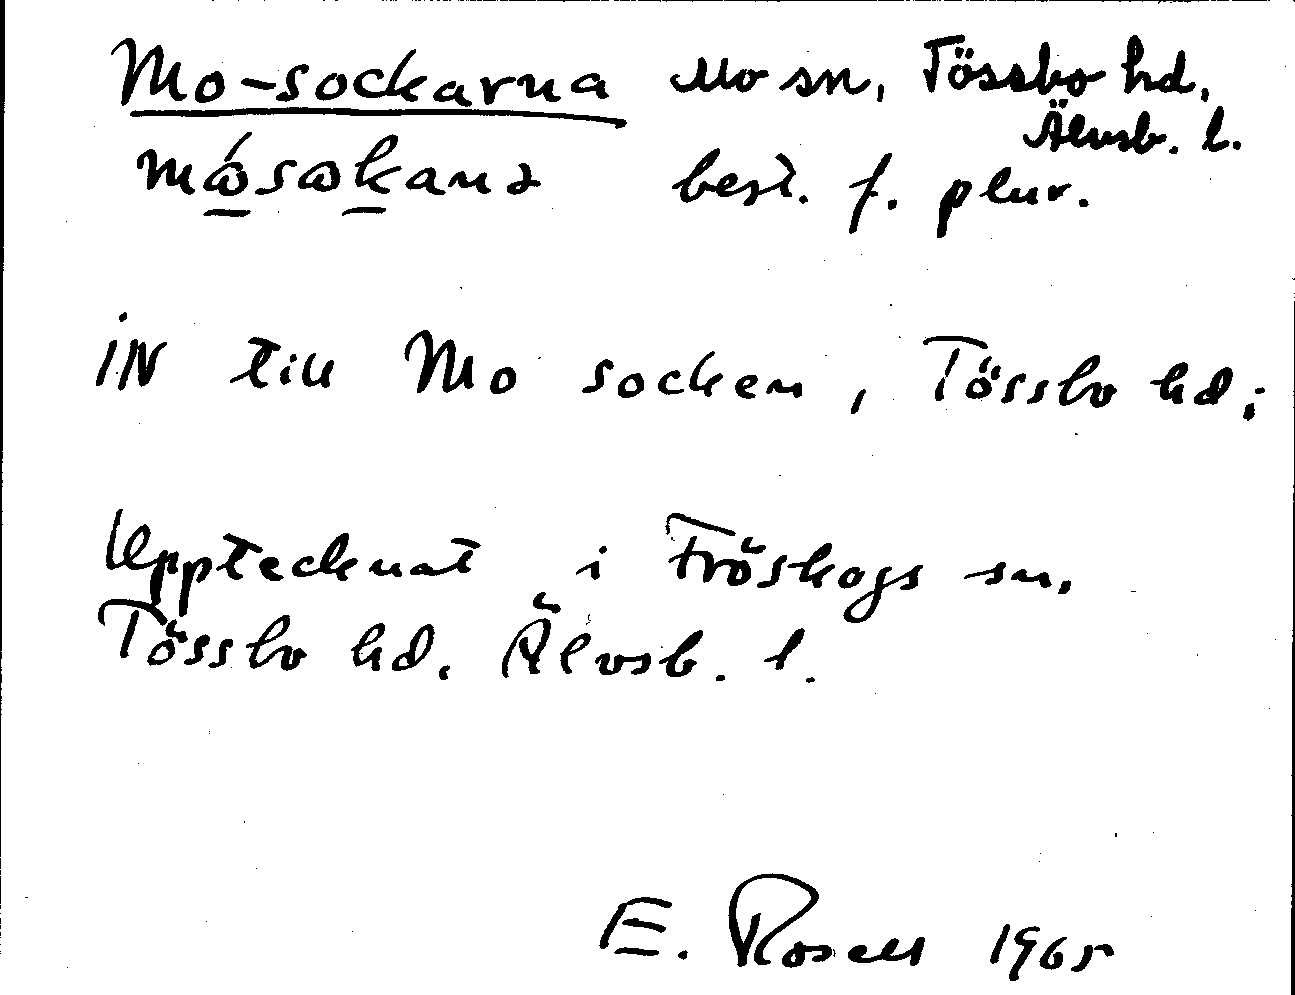 Mo-sockarna Mo sn, Tössbo hd, Älvsb. l.
best. f. plur.
IN till Mo socken, Tössbo hd;
Upptecknat i Fröskogs sn.
Tössbo hd. Älvsb. l.
E. Rosell 1965